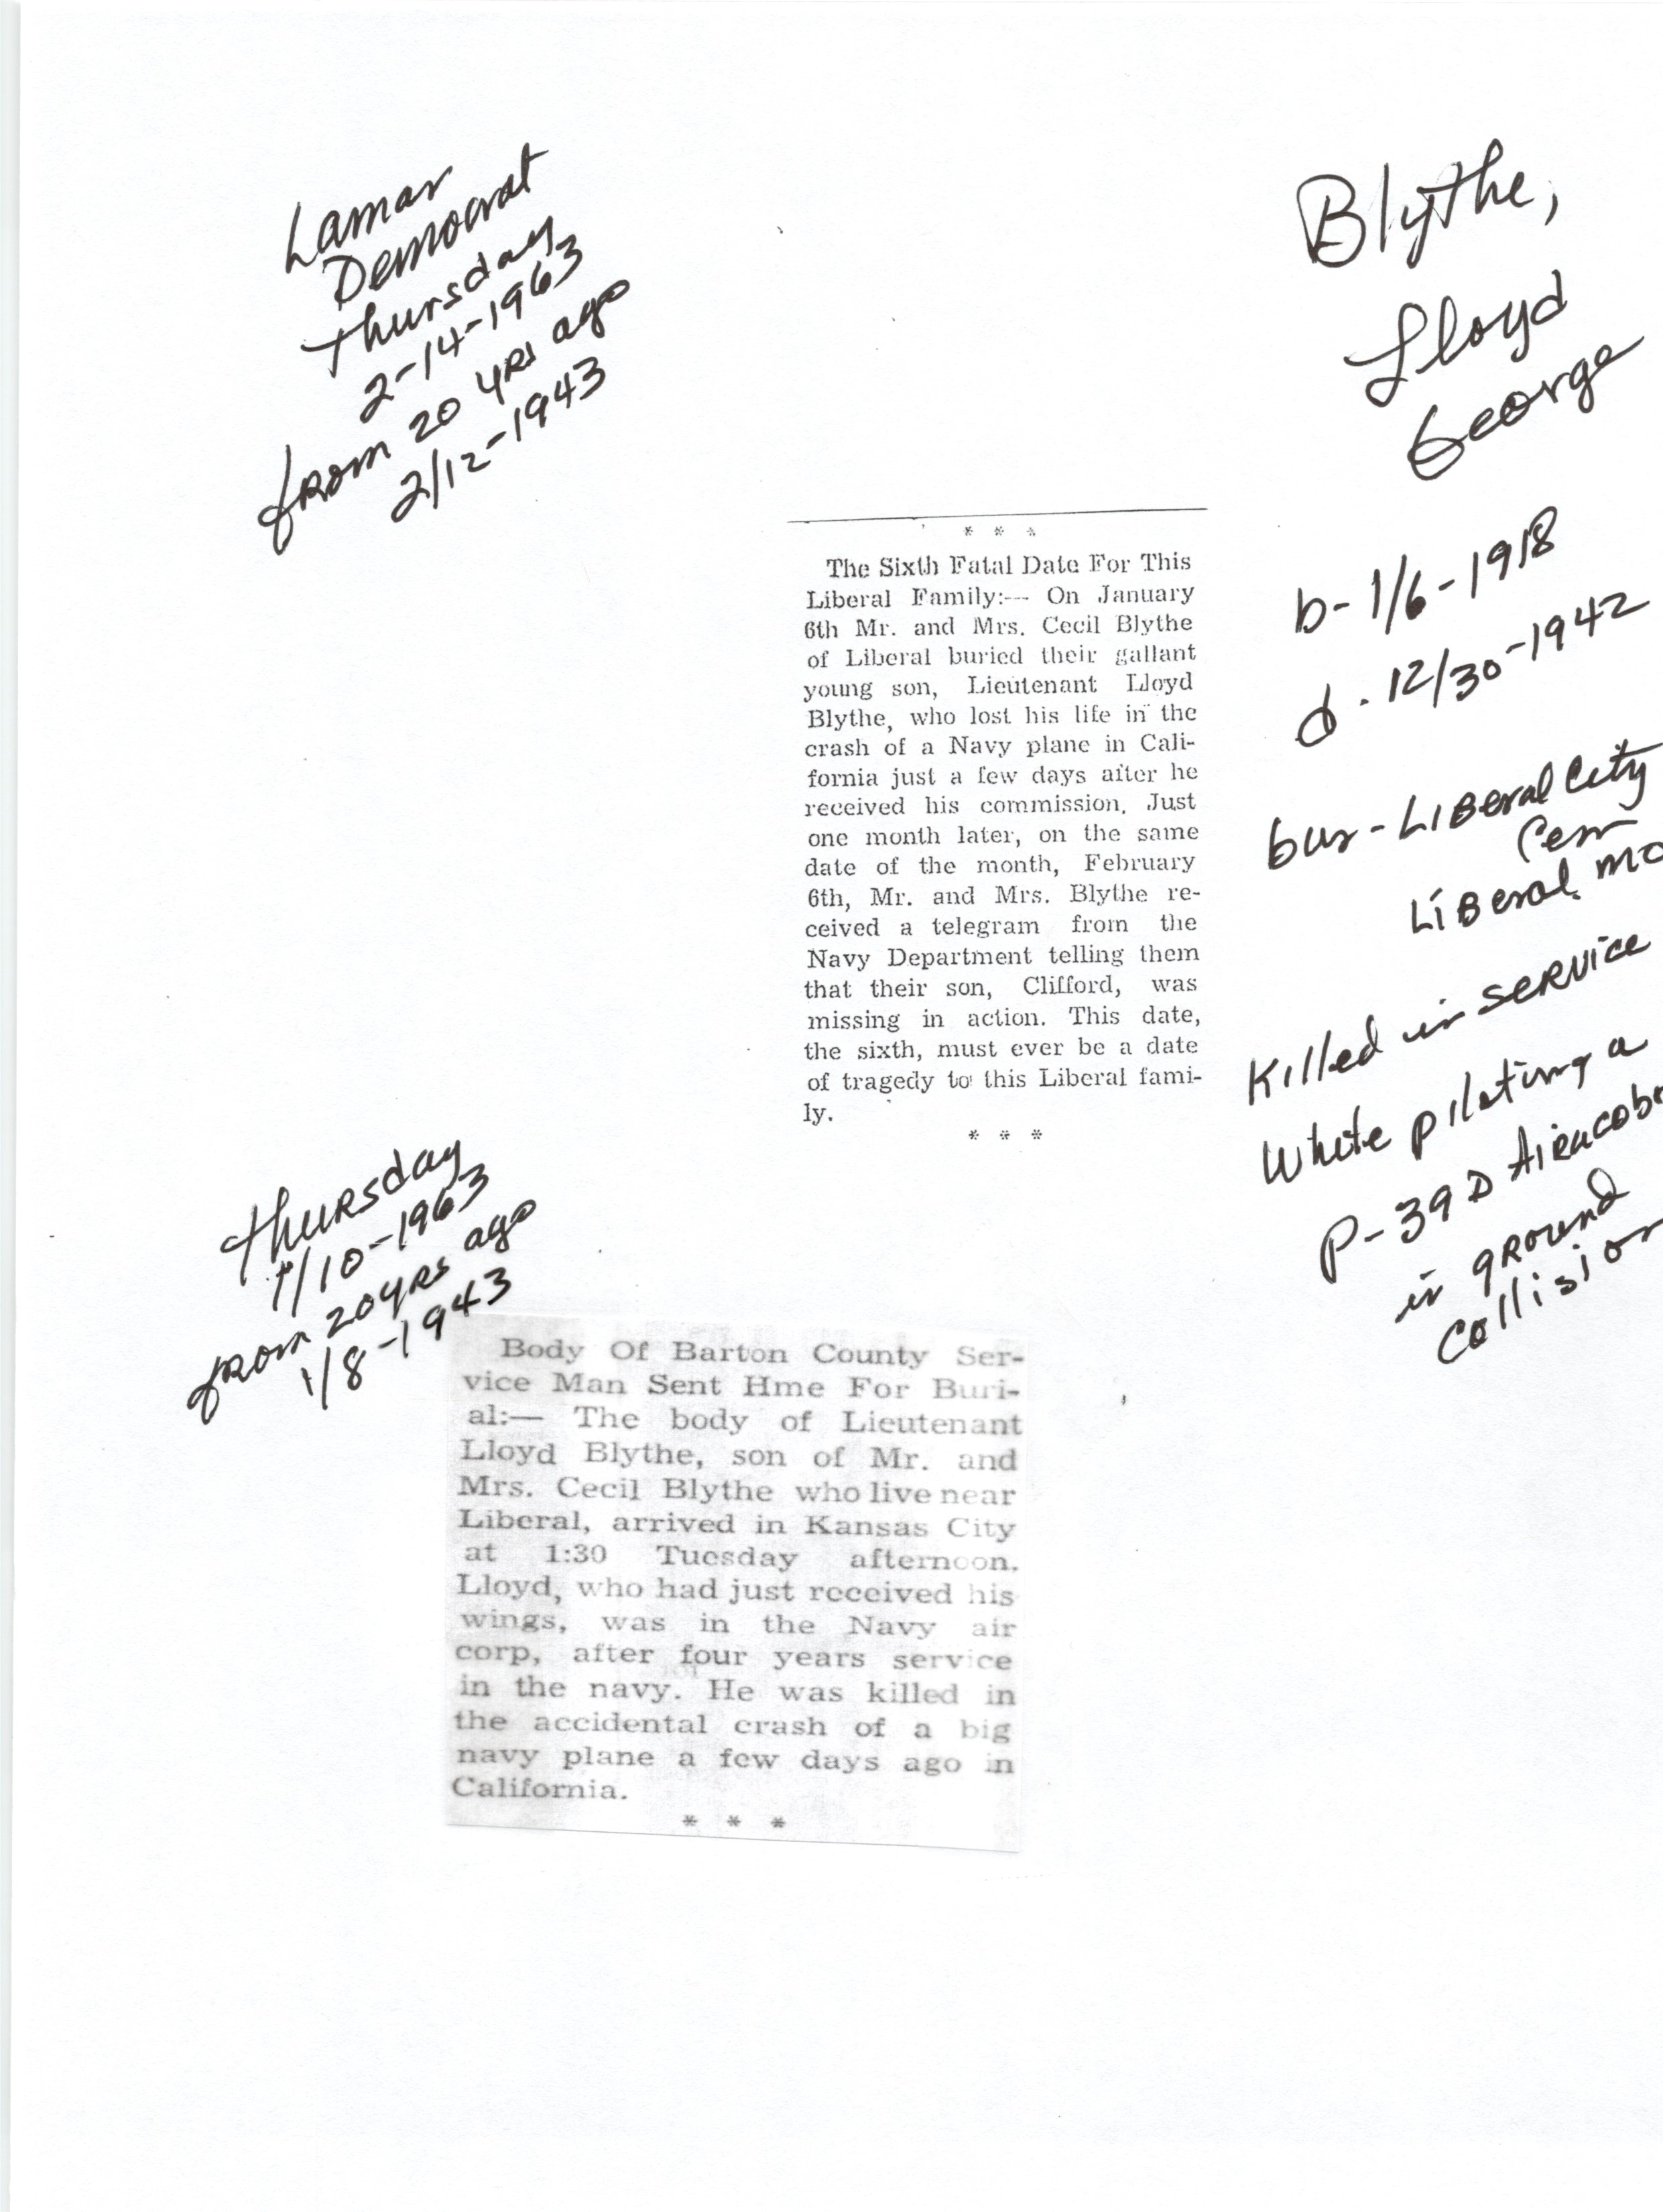 Lamar
Democrat
Thursday
2-14-1963
from 20 yrs ago
2/12-1943
Blythe,
Lloyd
George
b- 1/6-1918
d. 12/30-1942
bur-Liberal City
Cem
Liberal. Mo
Killed in service
While piloting a
P-39D Airacob
in ground
collision
* * *
The Sixth Fatal Date For This
Liberal Family:--- On January
6th Mr. and Mrs. Cecil Blythe
of Liberal buried their gallant
young son, Lieutenant Lloyd
Blythe, who lost his life in the
crash of a Navy plane in Cali-
fornia just a few days after he
received his commission. Just
one month later, on the same
date of the month, February
6th, Mr. and Mrs. Blythe re-
ceived a telegram from the
Navy Department telling them
that their son, Clifford, was
missing in action. This date,
the sixth, must ever be a date
of tragedy to this Liberal fami-
ly.
* * *
Thursday
1/10-1963
from 20 yrs ago
1/8-1943
Body Of Barton County Ser-
vice Man Sent Hme For Buri-
al:— The body of Lieutenant
Lloyd Blythe, son of Mr. and
Mrs. Cecil Blythe who live near
Liberal, arrived in Kansas City
at 1:30 Tuesday afternoon.
Lloyd, who had just received his
wings, was in the Navy air
corp, after four years service
in the navy. He was killed in
the accidental crash of a big
navy plane a few days ago in
California.
* * *